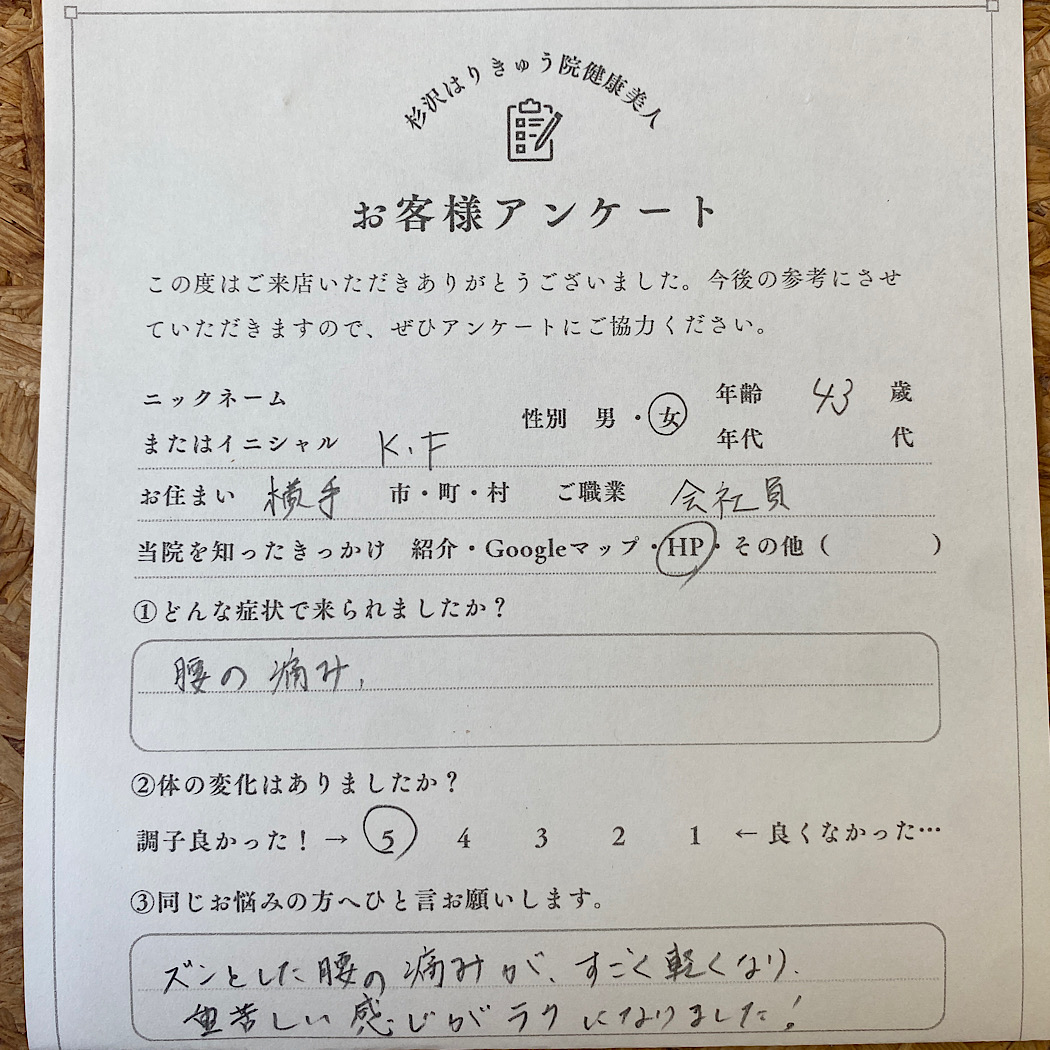 杉沢はりきゅう院健康美人
お客様アンケート
この度はご来店いただきありがとうございました。今後の参考にさせ
ていただきますので、ぜひアンケートにご協力ください。
ニックネーム
またはイニシャル K.F 性別 男・女 年齢 43 歳
年代 代
お住まい 横手 市・町・村 ご職業 会社員
当院を知ったきっかけ 紹介・Googleマップ・HP・その他( )
①どんな症状で来られましたか?
腰の痛み、
②体の変化はありましたか?
調子良かった!→ 5 4 3 2 1 ←良くなかった…
③同じお悩みの方へひと言お願いします。
ズンとした腰の痛みが、すごく軽くなり、
重苦しい感じがラクになりました!